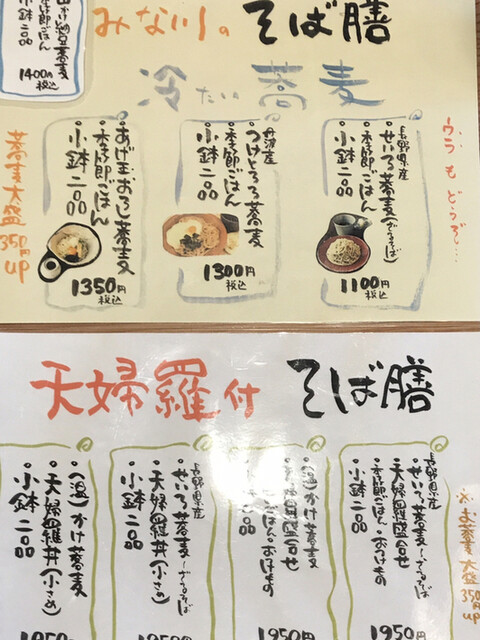 みな川のそば膳
冷たい蕎麦
ウラもどうぞ…
長野県産
・せいろ蕎麦(ざるそば)
・季節ごはん
・小鉢 二つ
1100円
税込
丹波産
・つけとろろ蕎麦
・季節ごはん
・小鉢 二つ
1300円
税込
・あげ玉おろし蕎麦
・季節ごはん
・小鉢 二つ
1350円
税込
蕎麦大盛350円up
小鉢 二つ
1400円
税込
天婦羅付そば膳
長野県産
・せいろ蕎麦(ざるそば
・天婦羅盛合せ
・季節ごはん・おつけもの
・小鉢 二つ
1950円
・(温)かけ蕎麦
・小鉢 二つ
1950円
長野県産
・せいろ蕎麦(ざるそば
・天婦羅丼(小さめ)
・小鉢 二つ
・(温)かけ蕎麦
・天婦羅丼(小さめ)
・小鉢 二つ
※お蕎麦大盛350円up